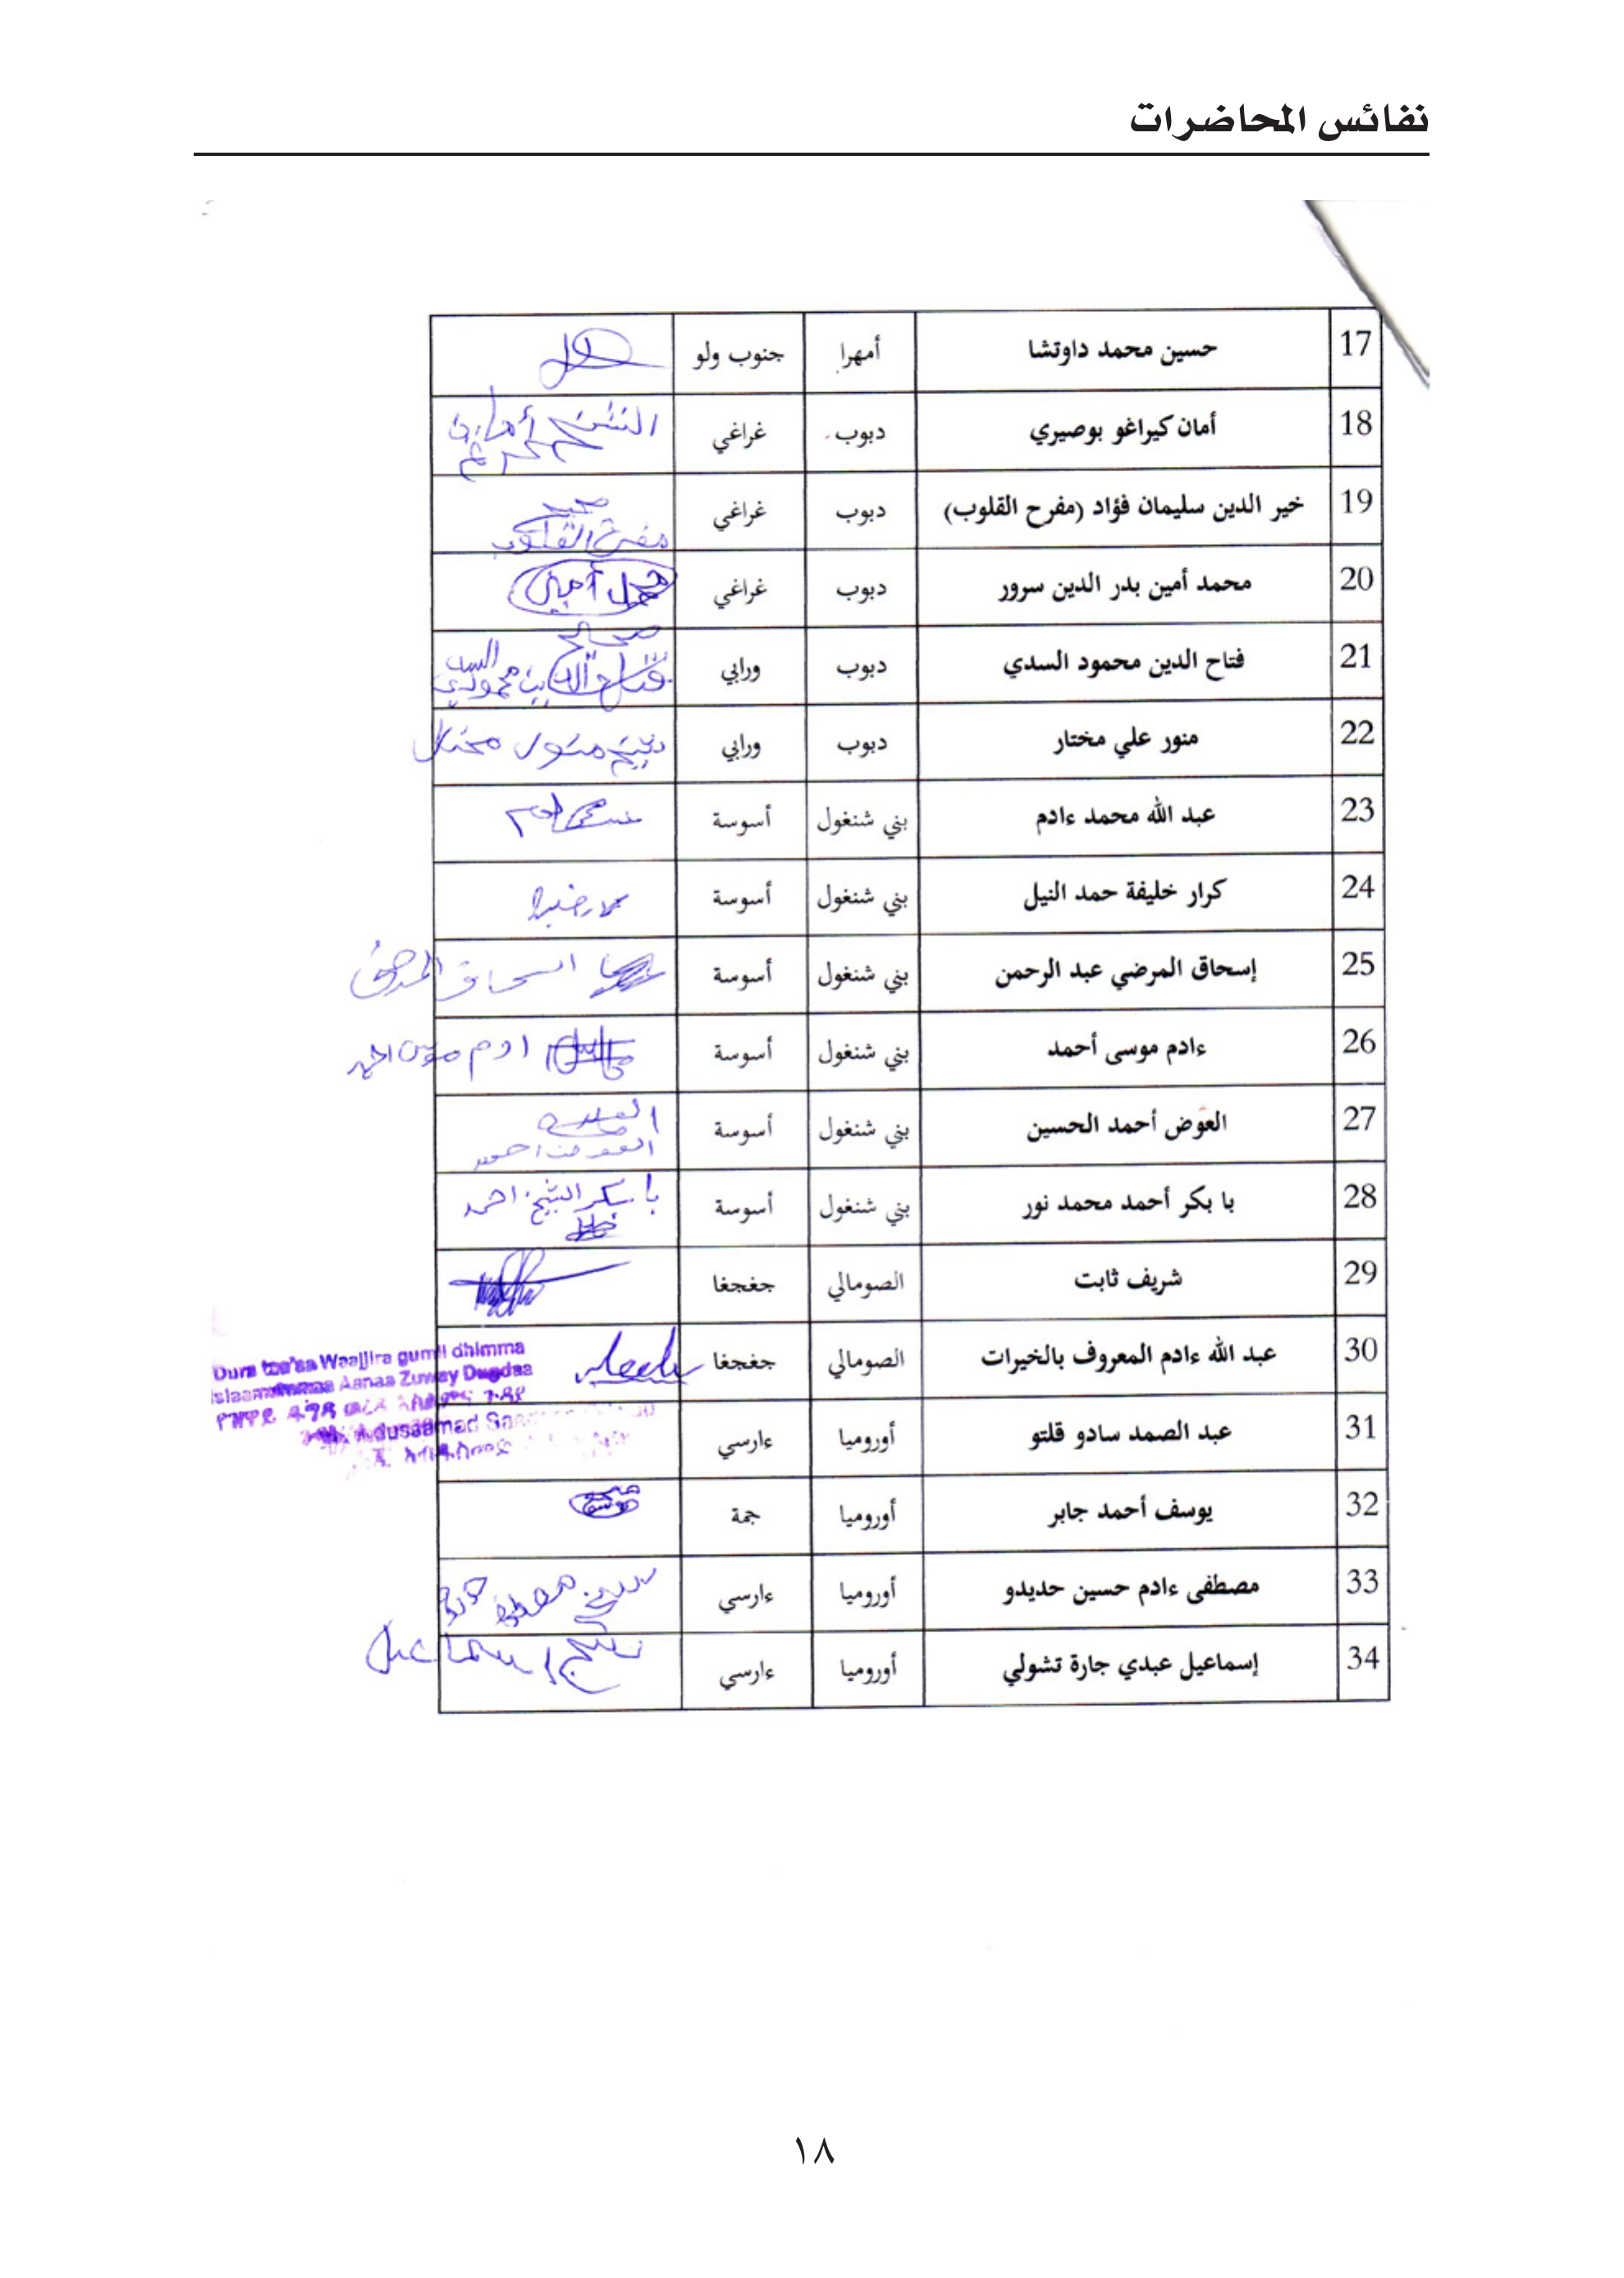 نفائس المحاضرات
17 حسين محمد داوتشا أمهرا جنوب ولو
18 أمان كيراغو بوصيري دبوب غراغي
19 خير الدين سليمان فؤاد (مفرح القلوب) دبوب غراغي مفرح القلوب
20 محمد أمين بدر الدين سرور دبوب غراغي محمد أمين
21 فتاح الدين محمود السدي دبوب ورابي
22 منور علي مختار دبوب ورابي
23 عبد الله محمد ءادم بني شنغول أسوسة
24 كرار خليفة حمد النيل بني شنغول أسوسة
25 إسحاق المرضي عبد الرحمن بني شنغول أسوسة اسحاق المرضي
26 ءادم موسى أحمد بني شنغول أسوسة ادم موسى احمد
27 العوَض أحمد الحسين بني شنغول أسوسة
28 با بكر أحمد محمد نور بني شنغول أسوسة با بكر الشيخ احمد
29 شريف ثابت الصومالي جغجغا
30 عبد الله ءادم المعروف بالخيرات الصومالي جغجغا
Dura taa'aa Waajjira gumii dhimma
Islaamummaa Aanaa Zuway Dugdaa
31 عبد الصمد سادو قلتو أوروميا ءارسي
32 يوسف أحمد جابر أوروميا جمة
33 مصطفى ءادم حسين حديدو أوروميا ءارسي
34 إسماعيل عبدي جارة تشولي أوروميا ءارسي
١٨